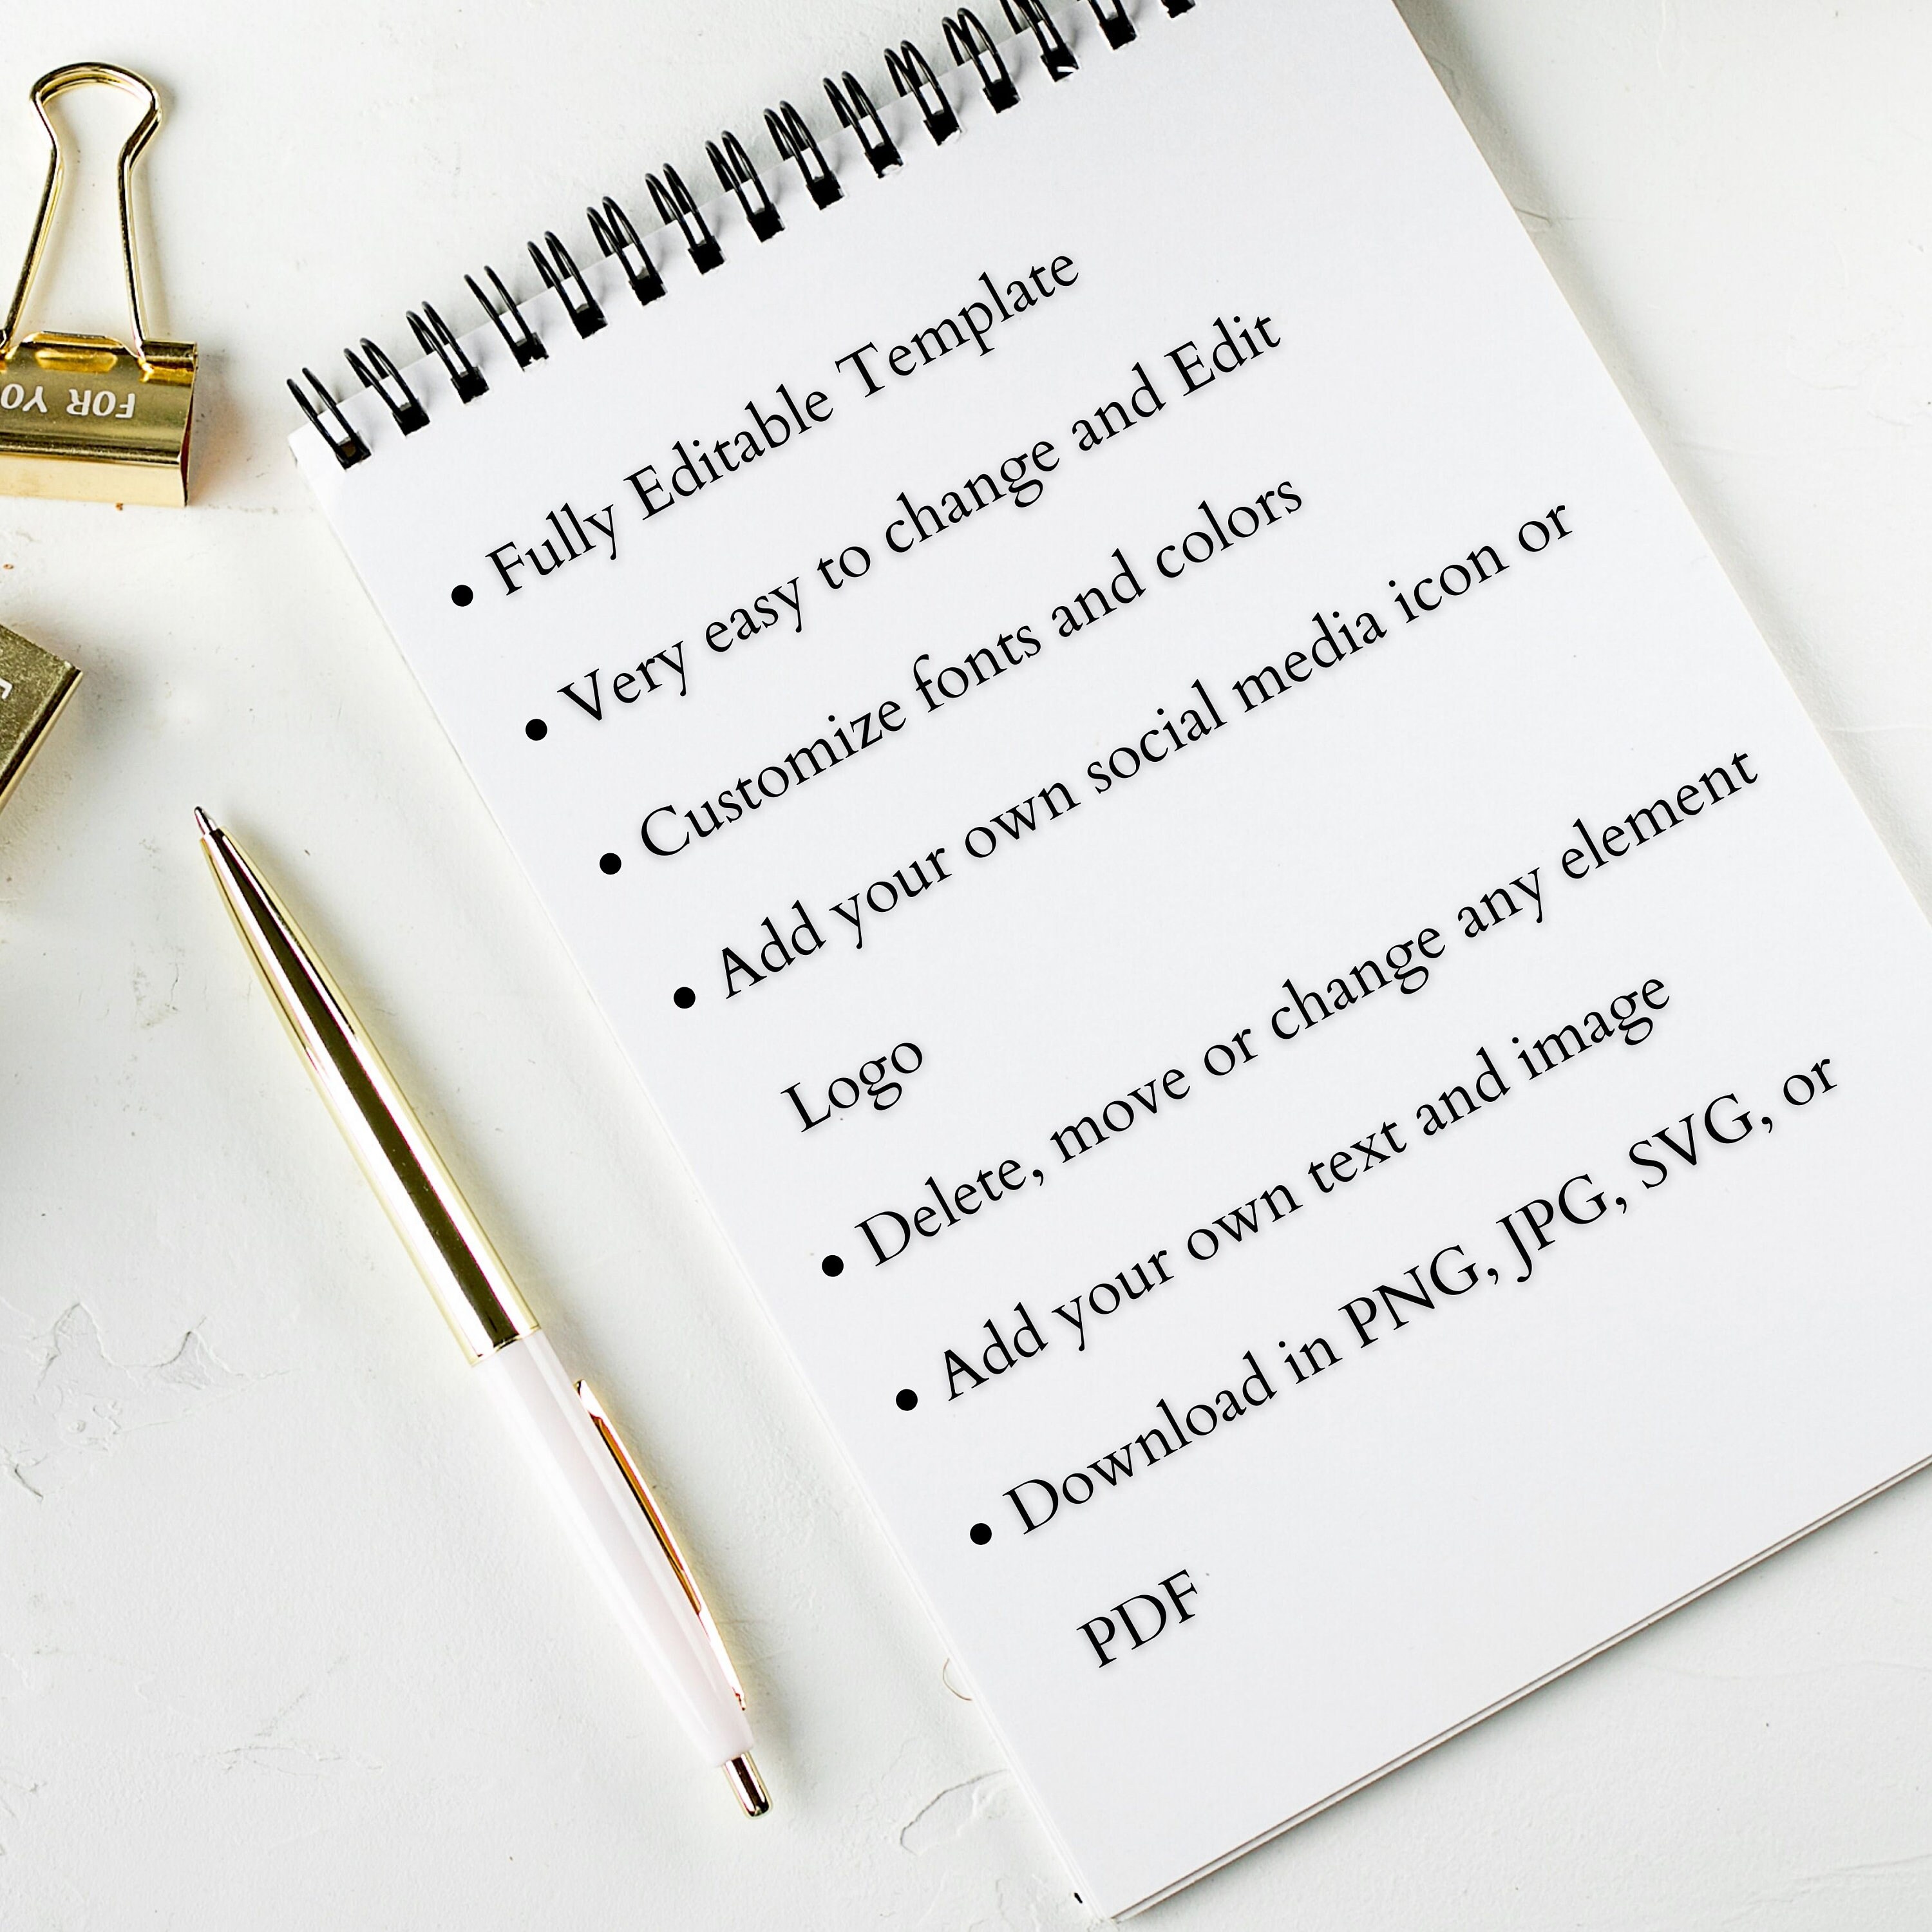 • Fully Editable Template
• Very easy to change and Edit
• Customize fonts and colors
• Add your own social media icon or
Logo
• Delete, move or change any element
• Add your own text and image
• Download in PNG, JPG, SVG, or
PDF
FOR YO